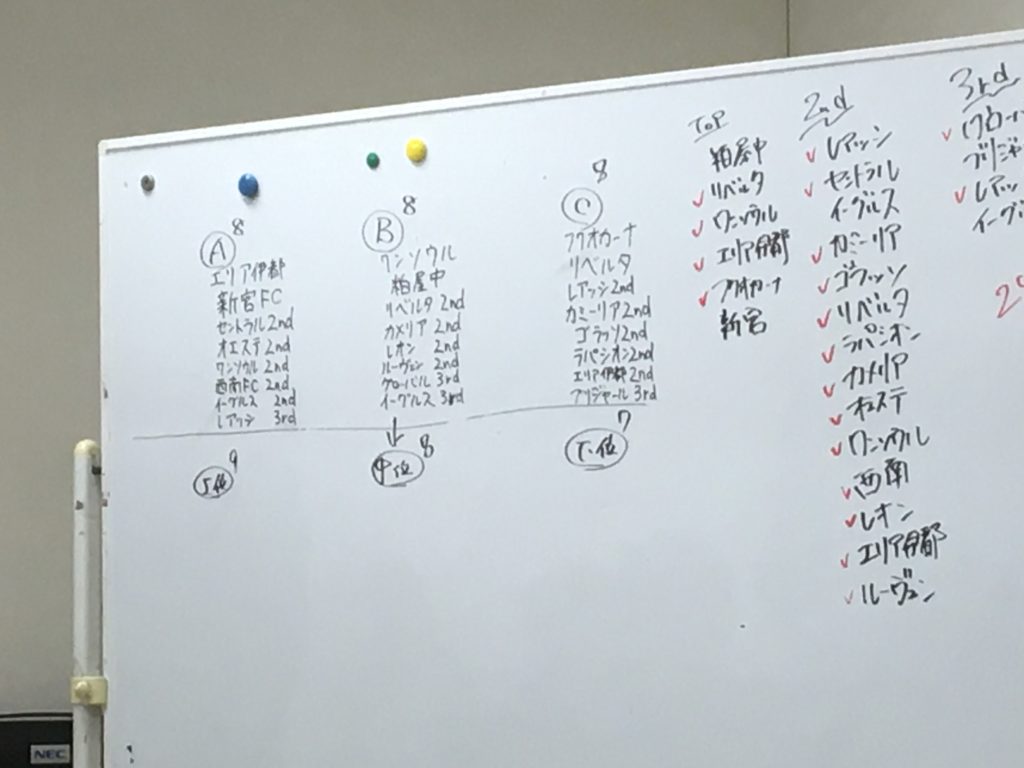 8
A
エリア伊都
新宮FC
セントラル2nd
オエステ2nd
ワンソウル 2nd
西南FC 2nd
イーグルス 2nd
レアッシ 3rd
9
上位
8
B
ワンソウル
粕屋中
リベルタ 2nd
カメリア 2nd
レオン 2nd
ルーヴェン 2nd
グローバル 3rd
イーグルス 3rd
8
中位
8
C
フクオカーナ
リベルタ
レアッシ2nd
カミーリア2nd
ゴラッソ2nd
ラパシオン2nd
エリア伊都 2nd
ブリジャール 3rd
7
下位
TOP
粕屋中
リベルタ
ワンソウル
エリア伊都
フクオカーナ
新宮
2nd
レアッシ
セントラル
イーグルス
カミーリア
ゴラッソ
リベルタ
ラパシオン
カメリア
オエステ
ワンソウル
西南
レオン
エリア伊都
ルーヴェン
3rd
NEC